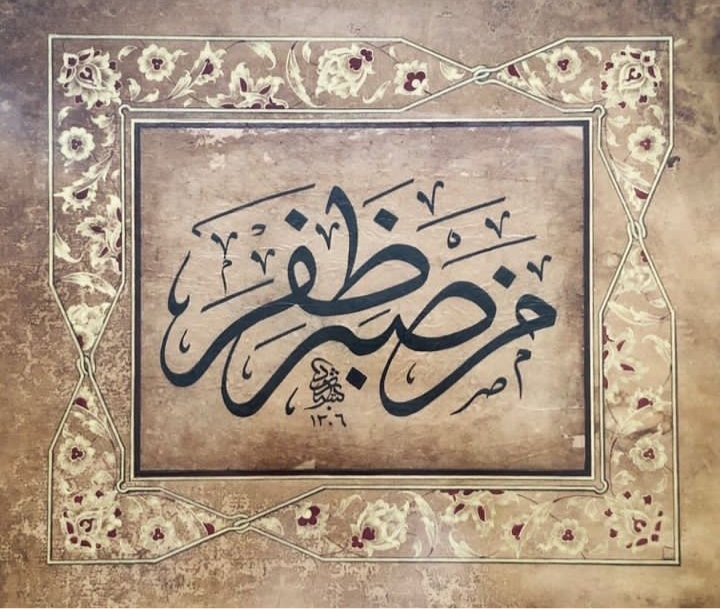 من صبر ظفر
١٣٠٦